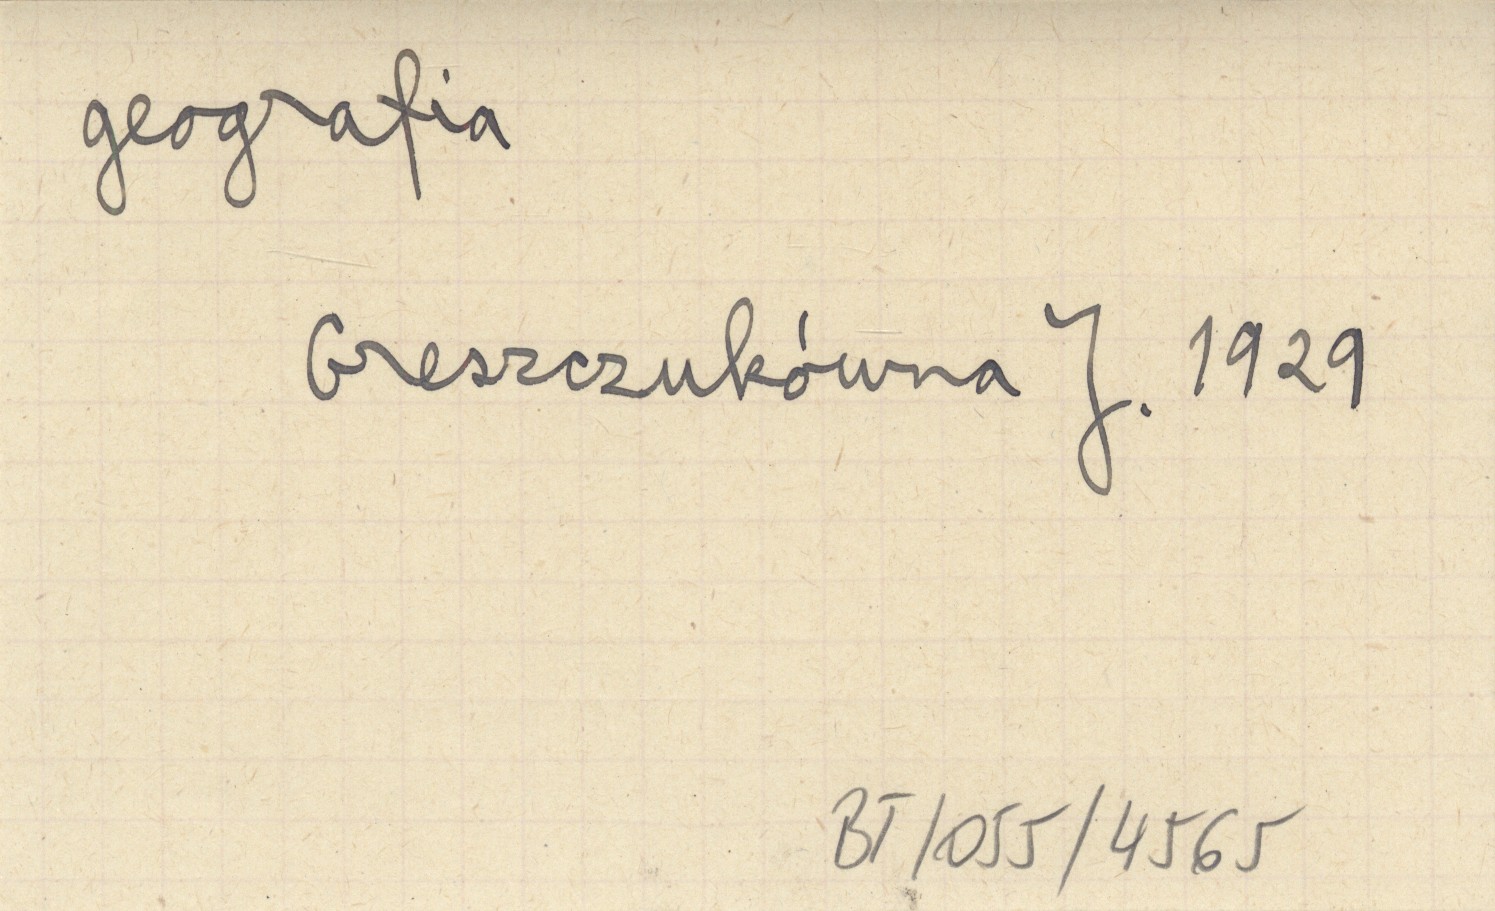 geografia
Greszczukówna J. 1929
BT/055/4565